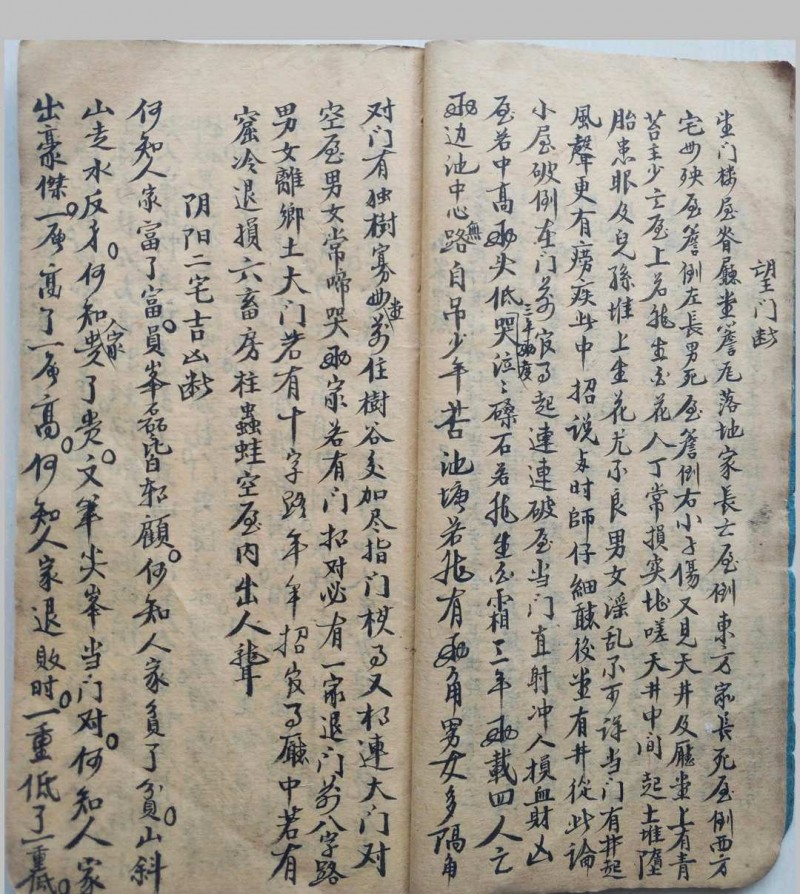 望门断
坐门楼屋脊厛堂簷尾落地家長亡屋倒東方家長死屋倒西方
宅母殃屋簷倒左長男死屋簷倒右小子傷又見天井及厛堂上有青
苔主少亡屋上若生白花人丁常損哭嗟天井中间起土堆墮
胎患眼及兒孫堆上生花尤不良男女淫乱不可詳当门有井起
風聲更有痨疾此中招説与时師仔細聼後堂有井從此論
小屋破倒在门前官司起連連破屋当门直射冲人損血財凶
屋若中高両头低哭泣三年両度磉石若生白霜三年両載四人亡
両边池中心路無自吊少年苦池塘若有両角男女多隔角
对门有独樹寡母堂前住樹谷交加尽指门横司又相連大门对
空屋男女常啼哭両家若有门招对必有一家退门前八字路
男女離鄉土大门若有十字路年年招官司厛中若有
窟冷退損六畜房柱蟲蛙空屋内出人聾
阴阳二宅吉凶断
何知人家富了富。員峯磊磊皆相顧。何知人家貧了貧。山斜
山走水反才。何知人家贵了贵。文筆尖峯当门对。何知人家
出豪傑。一層高了一層高。何知人家退敗时。一重低了一重低。